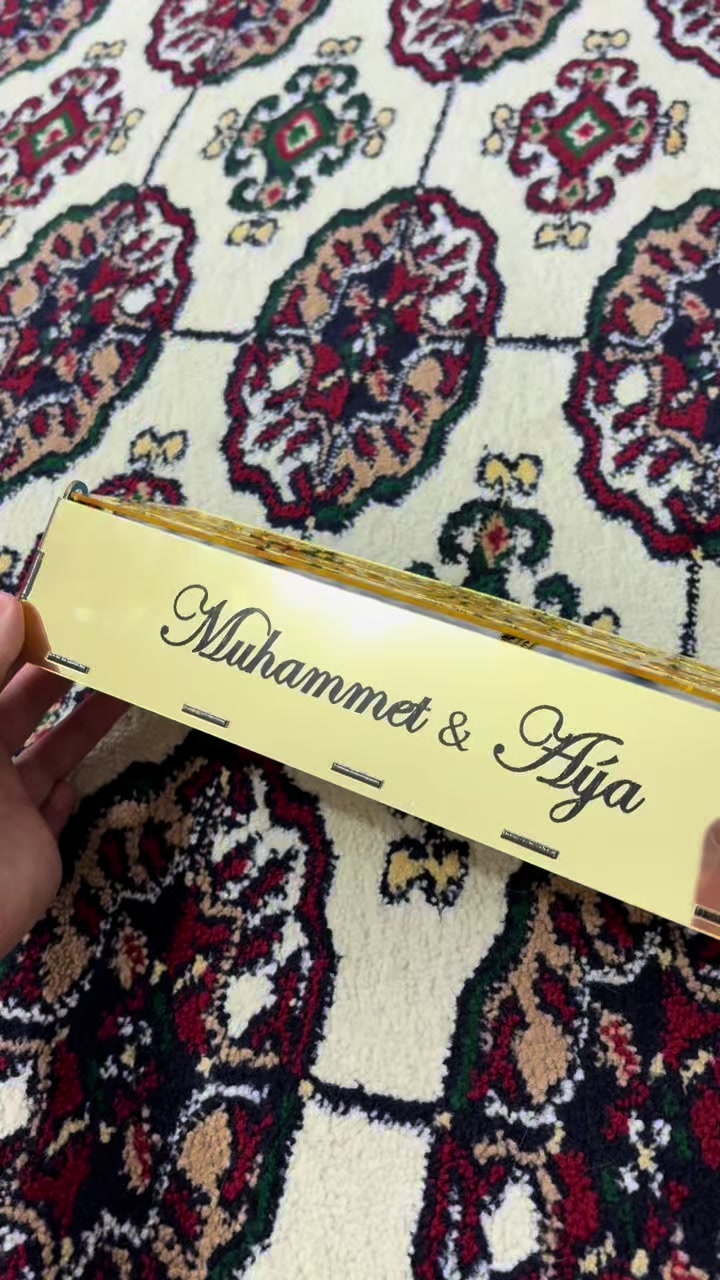 Muhammet & Aýa